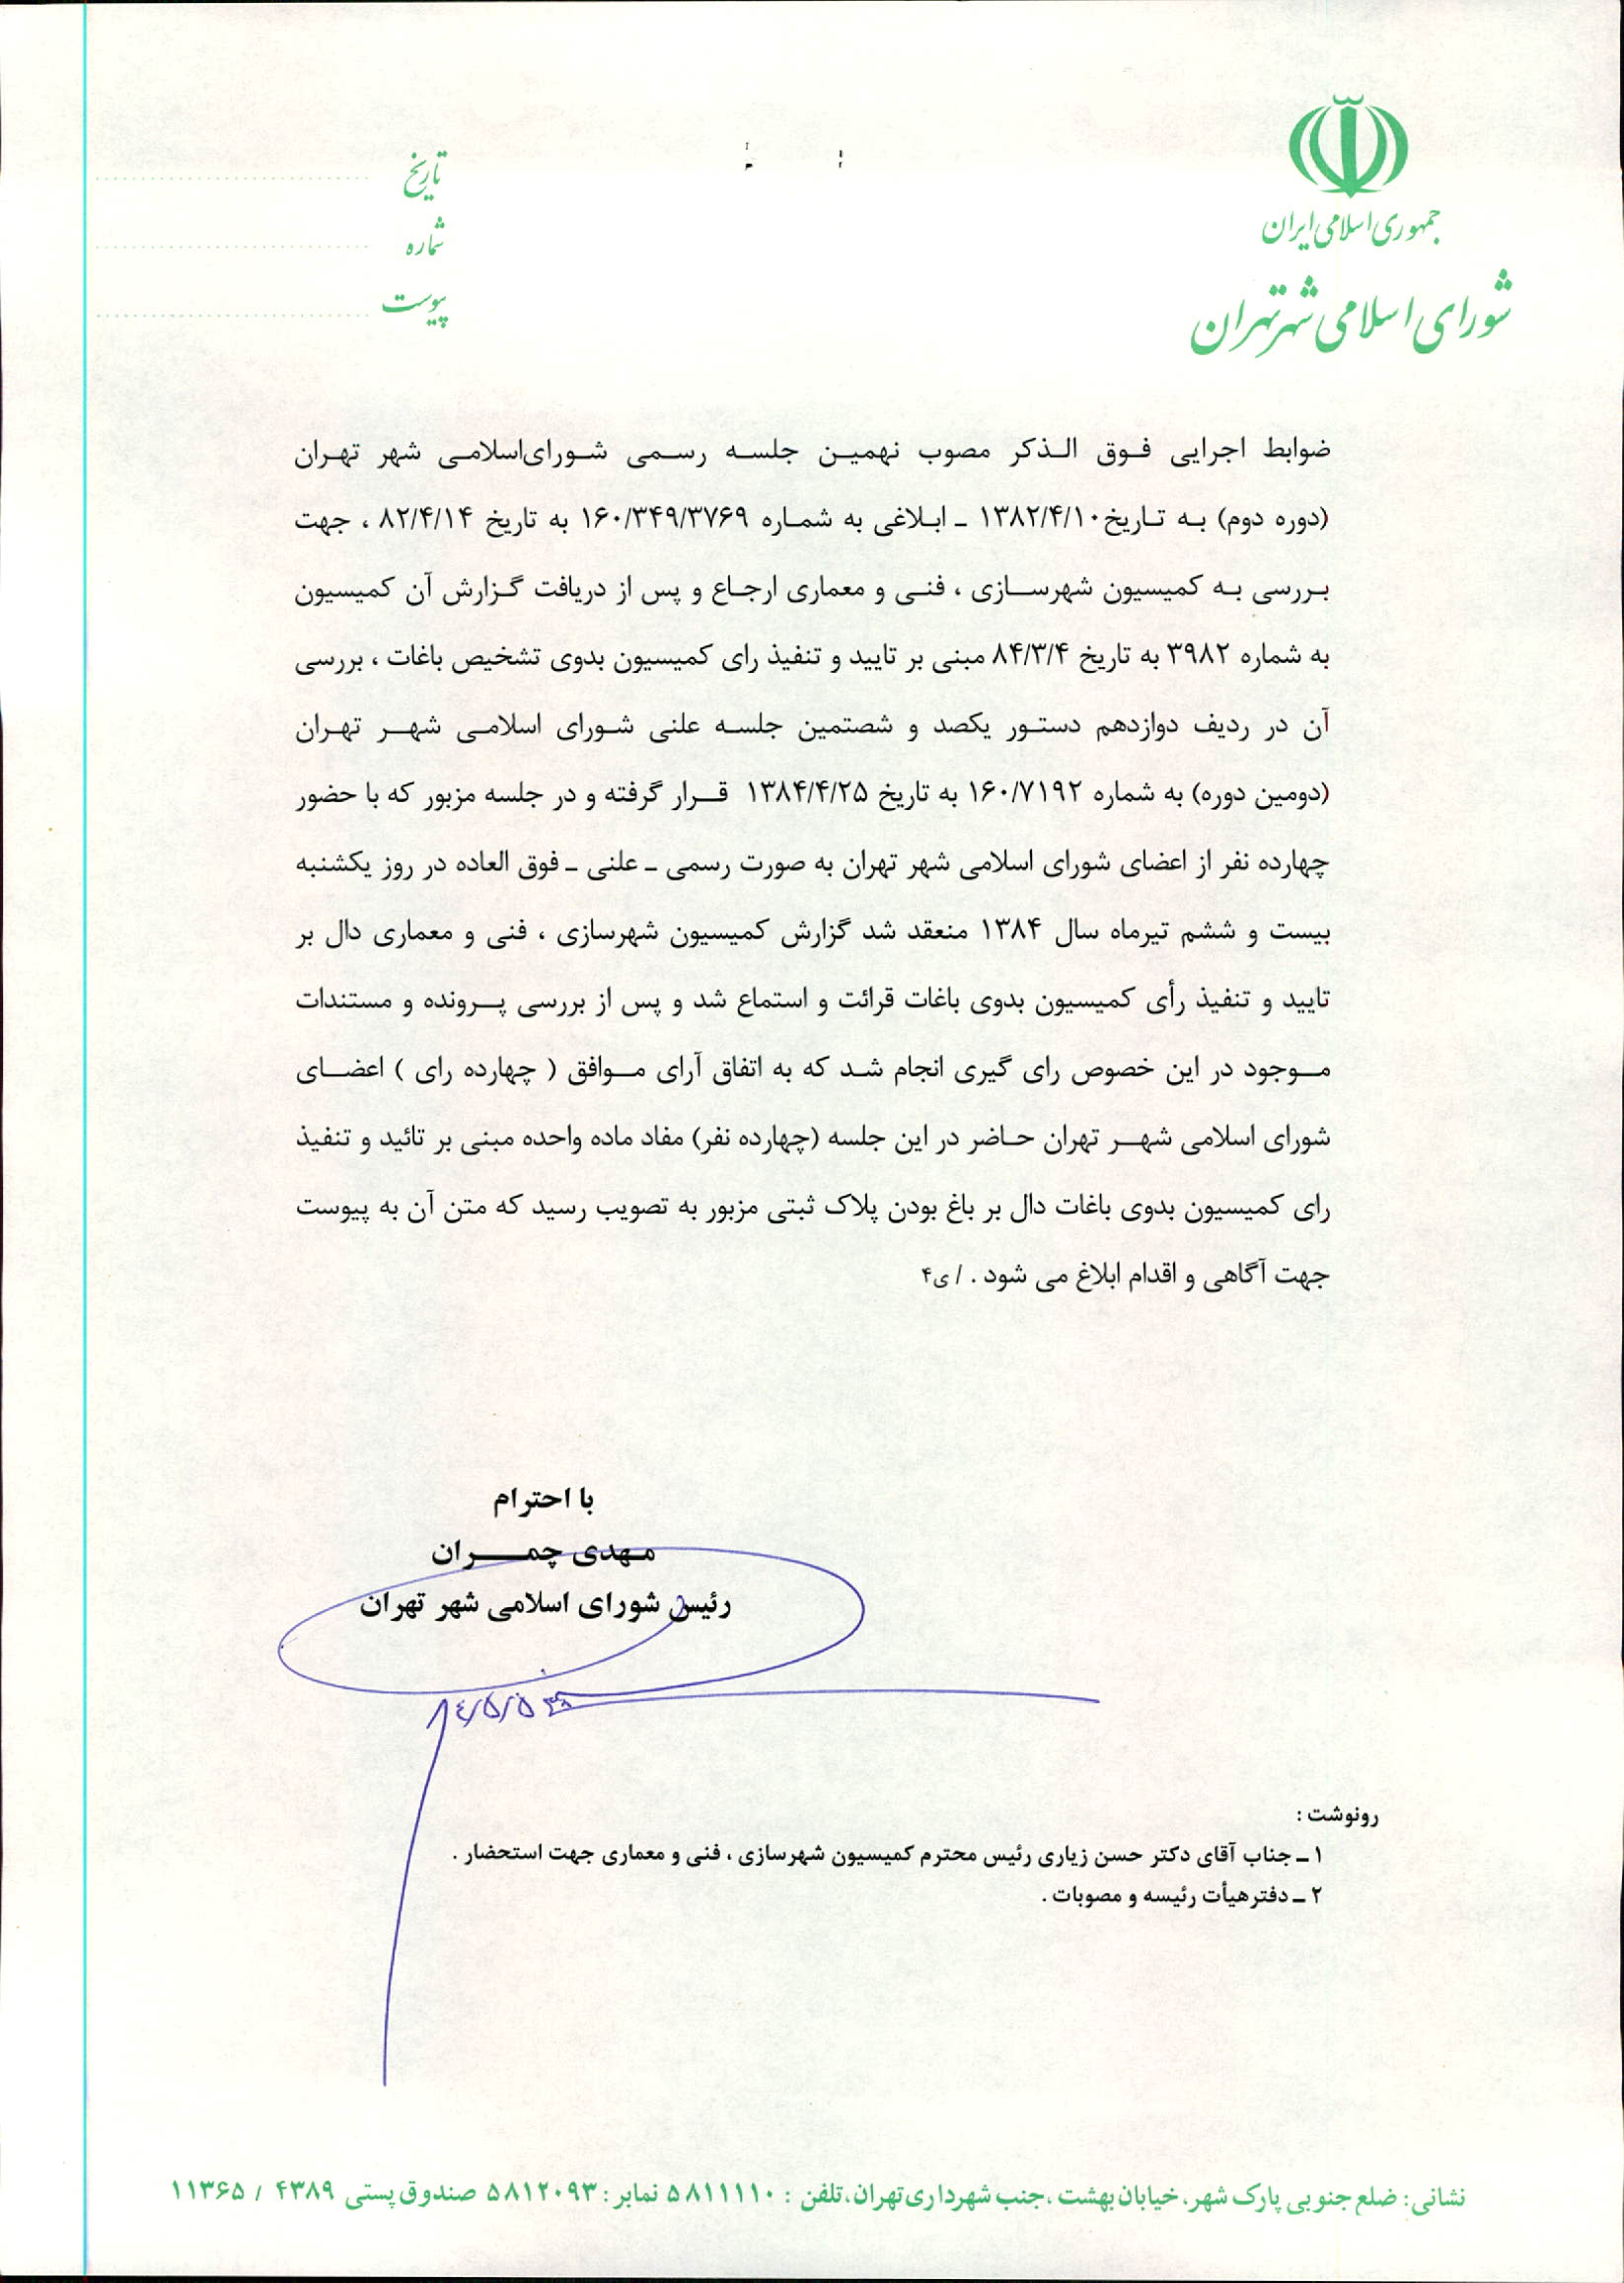 جمهوری اسلامی ایران
شورای اسلامی شهر تهران
تاریخ
شماره
پیوست
ضوابط اجرایی فوق الذکر مصوب نهمین جلسه رسمی شورای‌اسلامی شهر تهران
(دوره دوم) به تاریخ ۱۳۸۲/۴/۱۰ ـ ابلاغی به شماره ۱۶۰/۳۴۹/۳۷۶۹ به تاریخ ۸۲/۴/۱۴ ، جهت
بررسی به کمیسیون شهرسازی ، فنی و معماری ارجاع و پس از دریافت گزارش آن کمیسیون
به شماره ۳۹۸۲ به تاریخ ۸۴/۳/۴ مبنی بر تایید و تنفیذ رای کمیسیون بدوی تشخیص باغات ، بررسی
آن در ردیف دوازدهم دستور یکصد و شصتمین جلسه علنی شورای اسلامی شهر تهران
(دومین دوره) به شماره ۱۶۰/۷۱۹۲ به تاریخ ۱۳۸۴/۴/۲۵ قرار گرفته و در جلسه مزبور که با حضور
چهارده نفر از اعضای شورای اسلامی شهر تهران به صورت رسمی ـ علنی ـ فوق العاده در روز یکشنبه
بیست و ششم تیرماه سال ۱۳۸۴ منعقد شد گزارش کمیسیون شهرسازی ، فنی و معماری دال بر
تایید و تنفیذ رأی کمیسیون بدوی باغات قرائت و استماع شد و پس از بررسی پرونده و مستندات
موجود در این خصوص رای گیری انجام شد که به اتفاق آرای موافق ( چهارده رای ) اعضای
شورای اسلامی شهر تهران حاضر در این جلسه (چهارده نفر) مفاد ماده واحده مبنی بر تائید و تنفیذ
رای کمیسیون بدوی باغات دال بر باغ بودن پلاک ثبتی مزبور به تصویب رسید که متن آن به پیوست
جهت آگاهی و اقدام ابلاغ می شود . / ی۴
با احترام
مهدی چمران
رئیس شورای اسلامی شهر تهران
رونوشت :
۱ ـ جناب آقای دکتر حسن زیاری رئیس محترم کمیسیون شهرسازی ، فنی و معماری جهت استحضار .
۲ ـ دفتر هیأت رئیسه و مصوبات .
نشانی: ضلع جنوبی پارک شهر، خیابان بهشت ، جنب شهرداری تهران، تلفن : ۵۸۱۱۱۱۰ نمابر : ۵۸۱۲۰۹۳ صندوق پستی ۴۳۸۹ / ۱۱۳۶۵